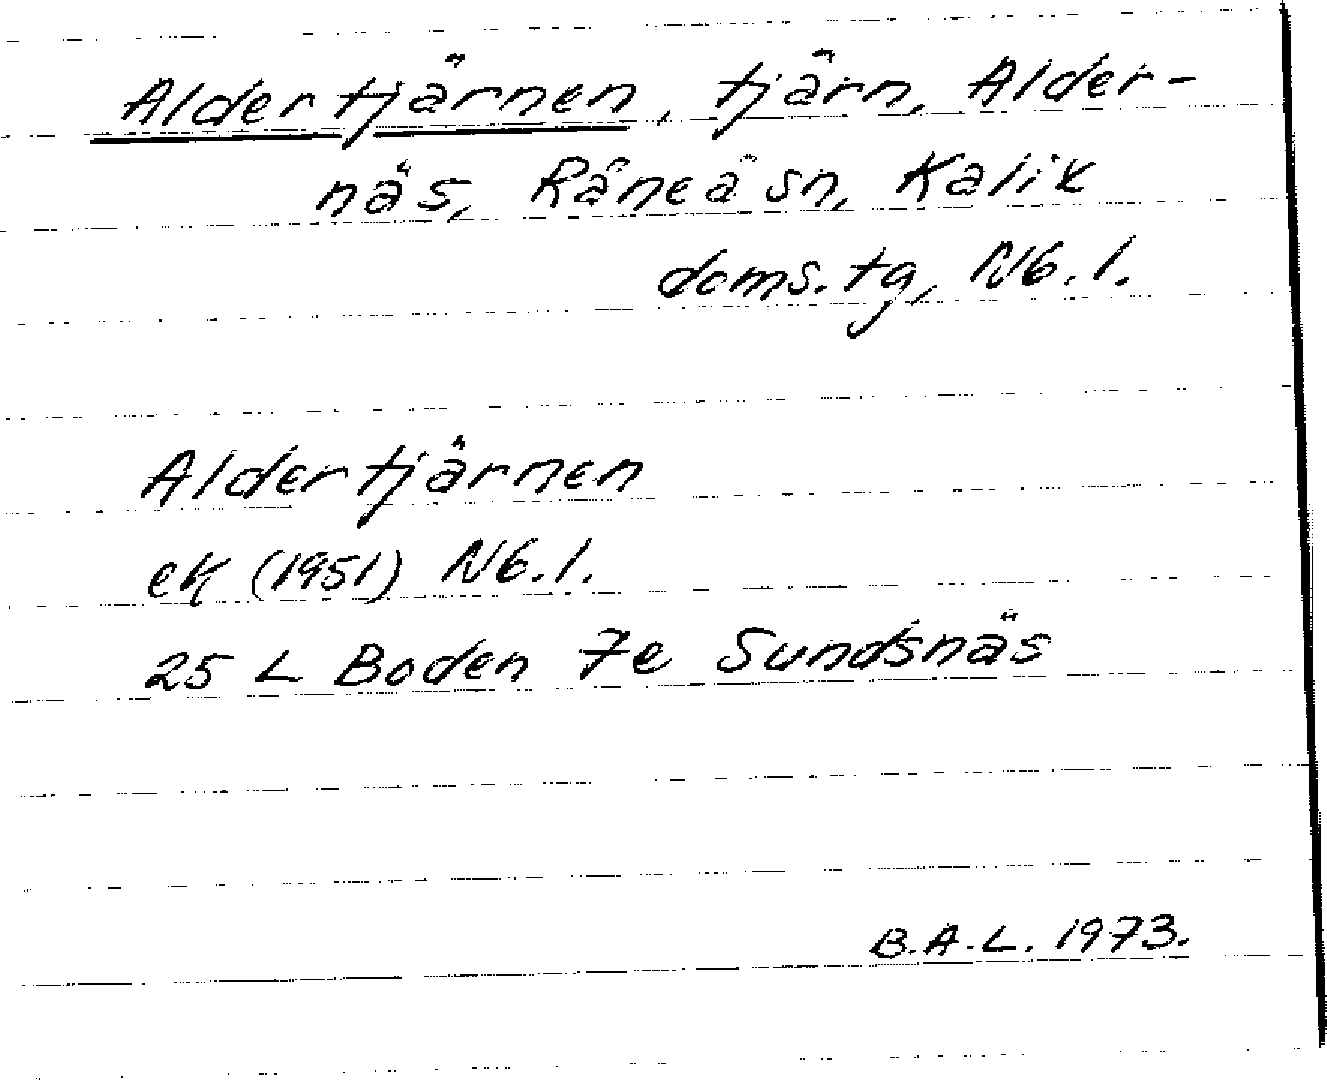 Aldertjärnen, tjärn, Alder-
näs, Råneå sn, Kalix
doms.tg, Nb.l.
Aldertjärnen
ek (1951) Nb.l.
25 L Boden 7e Sundsnäs
B.A.L. 1973.